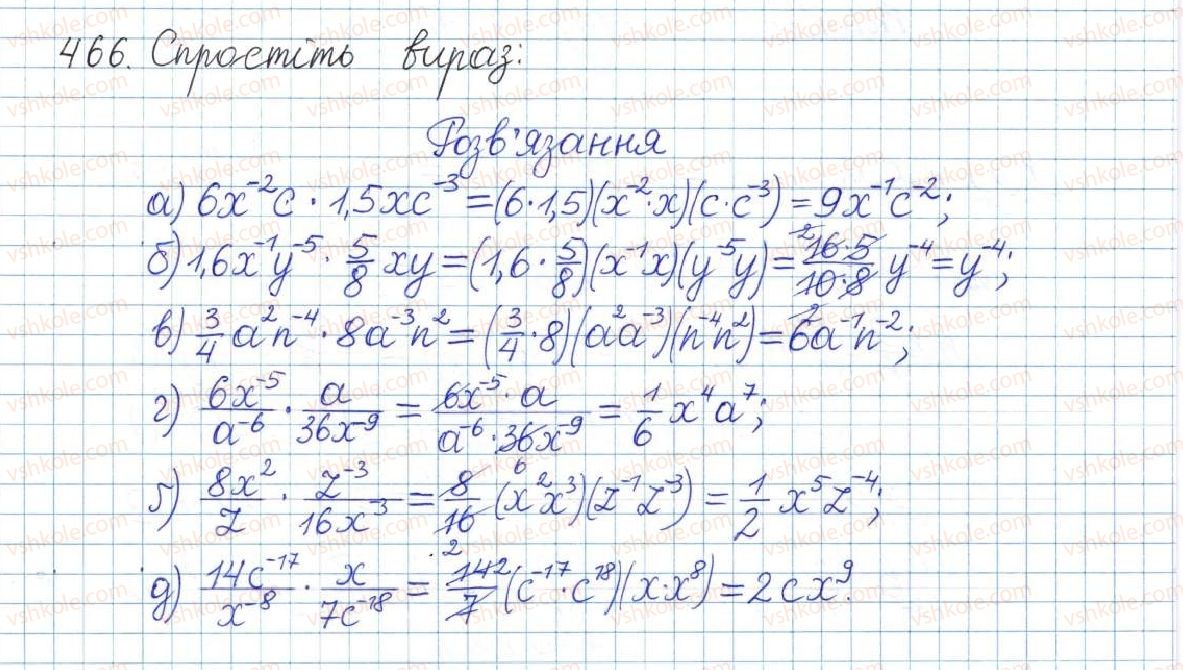 466. Спростіть вираз:
Розв'язання
а) 6x⁻²c · 1,5xc⁻³ = (6·1,5)(x⁻²·x)(c·c⁻³) = 9x⁻¹c⁻²;
б) 1,6x⁻¹y⁻⁵ · 5/8 xy = (1,6 · 5/8)(x⁻¹x)(y⁻⁵y) = 16·5/10·8 y⁻⁴ = y⁻⁴;
в) 3/4 a²n⁻⁴ · 8a⁻³n² = (3/4 · 8)(a²a⁻³)(n⁻⁴n²) = 6a⁻¹n⁻²;
г) 6x⁻⁵/a⁻⁶ · a/36x⁻⁹ = 6x⁻⁵·a/a⁻⁶·36x⁻⁹ = 1/6 x⁴a⁷;
ґ) 8x²/z · z⁻³/16x⁻³ = 8/16 (x²x³)(z⁻¹z⁻³) = 1/2 x⁵z⁻⁴;
д) 14c⁻¹⁷/x⁻⁸ · x/7c⁻¹⁸ = 14/7 (c⁻¹⁷·c¹⁸)(x·x⁸) = 2cx⁹.